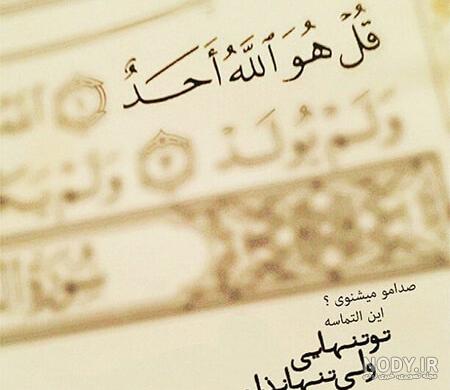 قُلْ هُوَ ٱللَّهُ أَحَدٌ ١
وَلَمْ يُولَدْ ٣ وَلَمْ
سُورَةُ
صدامو میشنوی ؟
این التماسه
تو تنهایی
ولی
NODY.IR